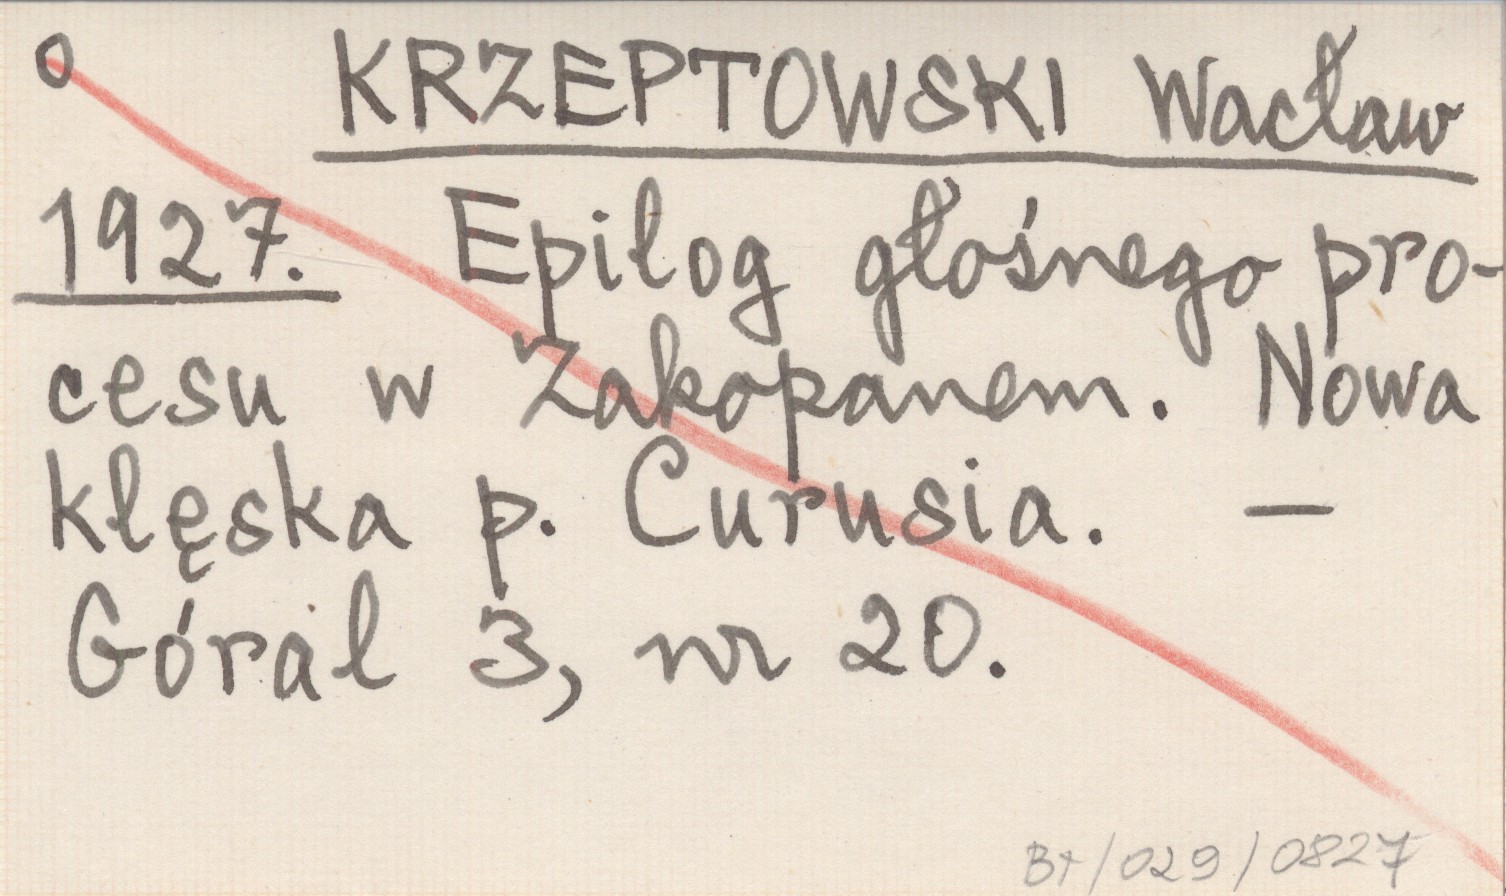 o KRZEPTOWSKI Wacław
1927. Epilog głośnego pro-
cesu w Zakopanem. Nowa
klęska p. Curusia. —
Góral 3, nr 20.
Bt/029/0827